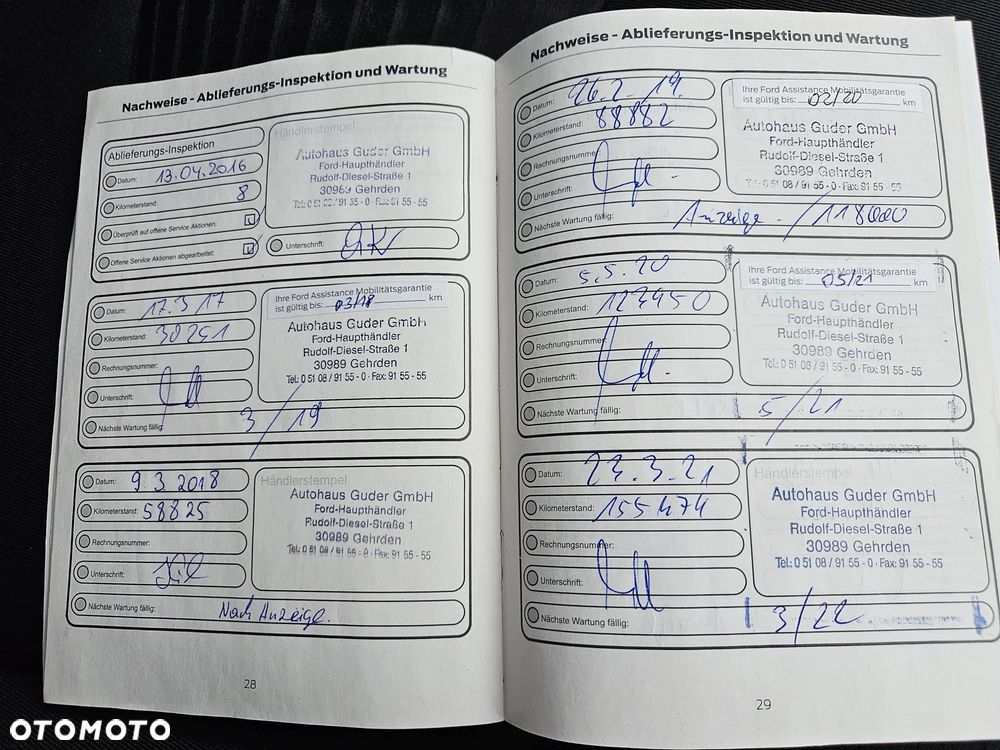 Nachweise - Ablieferungs-Inspektion und Wartung
Ablieferungs-Inspektion
Datum: 13.04.2016
Kilometerstand: 8
Überprüft auf offene Service Aktionen:
Offene Service Aktionen abgearbeitet:
Händlerstempel
Autohaus Guder GmbH
Ford-Haupthändler
Rudolf-Diesel-Straße 1
30989 Gehrden
Tel.: 0 51 08 / 91 55 - 0 · Fax: 91 55 - 55
Unterschrift:
Datum: 17.3.17
Kilometerstand: 30251
Rechnungsnummer:
Unterschrift:
Nächste Wartung fällig: 3/19
Ihre Ford Assistance Mobilitätsgarantie
ist gültig bis: 03/18 km
Autohaus Guder GmbH
Ford-Haupthändler
Rudolf-Diesel-Straße 1
30989 Gehrden
Tel.: 0 51 08 / 91 55 - 0 · Fax: 91 55 - 55
Datum: 9.3.2018
Kilometerstand: 58825
Rechnungsnummer:
Unterschrift:
Nächste Wartung fällig: Nach Anzeige.
Händlerstempel
Autohaus Guder GmbH
Ford-Haupthändler
Rudolf-Diesel-Straße 1
30989 Gehrden
Tel.: 0 51 08 / 91 55 - 0 · Fax: 91 55 - 55
28
Nachweise - Ablieferungs-Inspektion und Wartung
Datum: 26.2.19.
Kilometerstand: 88882
Rechnungsnummer:
Unterschrift:
Nächste Wartung fällig: Anzeige - / 118000
Ihre Ford Assistance Mobilitätsgarantie
ist gültig bis: 02/20 km
Autohaus Guder GmbH
Ford-Haupthändler
Rudolf-Diesel-Straße 1
30989 Gehrden
Tel.: 0 51 08 / 91 55 - 0 · Fax: 91 55 - 55
Datum: 5.5.20
Kilometerstand: 127950
Rechnungsnummer:
Unterschrift:
Nächste Wartung fällig: 5/21
Ihre Ford Assistance Mobilitätsgarantie
ist gültig bis: 05/21 km
Autohaus Guder GmbH
Ford-Haupthändler
Rudolf-Diesel-Straße 1
30989 Gehrden
Tel.: 0 51 08 / 91 55 - 0 · Fax: 91 55 - 55
Datum: 23.3.21
Kilometerstand: 155474
Rechnungsnummer:
Unterschrift:
Nächste Wartung fällig: 3/22
Händlerstempel
Autohaus Guder GmbH
Ford-Haupthändler
Rudolf-Diesel-Straße 1
30989 Gehrden
Tel.: 0 51 08 / 91 55 - 0 · Fax: 91 55 - 55
29
OTOMOTO